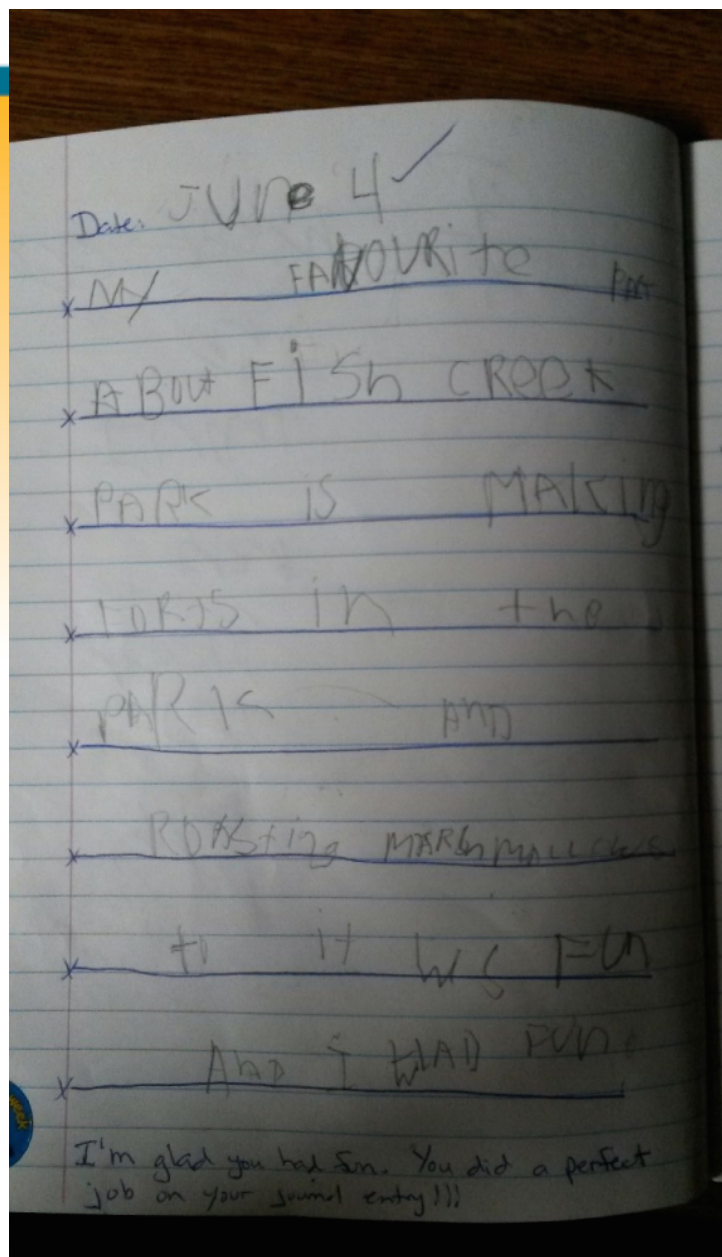 Date: JUNe 4
MY FAVOURite PAt
ABOUt FiSh CReek
PARK iS MAKing
FORtS in the
PARK AnD
ROASting MARShMALLOWS
to it WS FUn
AnD I HAD FUN.
I'm glad you had fun. You did a perfect
job on your journal entry!!!
week